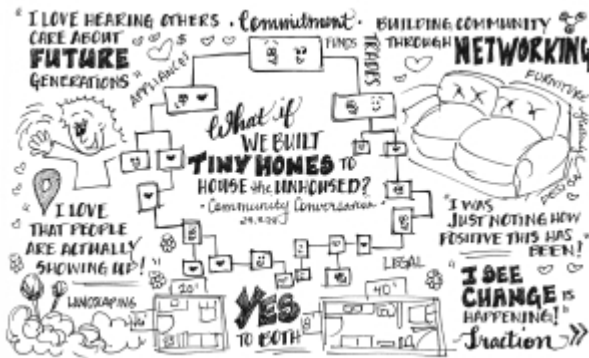 "I LOVE HEARING OTHERS
CARE ABOUT
FUTURE
GENERATIONS"
• Commitment •
FUNDS
TRADES
APPLIANCES
BUILDING COMMUNITY
THROUGH NETWORKING
FURNITURE
DESIGN
What if
WE BUILT
TINY HOMES TO
HOUSE the UNHOUSED?
• Community Conversation •
"I LOVE
THAT PEOPLE
ARE ACTUALLY
SHOWING UP!"
"I WAS
JUST NOTING HOW
POSITIVE THIS HAS
BEEN!"
LEGAL
LANDSCAPING
20'
8'
YES
TO BOTH
40'
8
"I SEE
CHANGE IS
HAPPENING!"
Traction